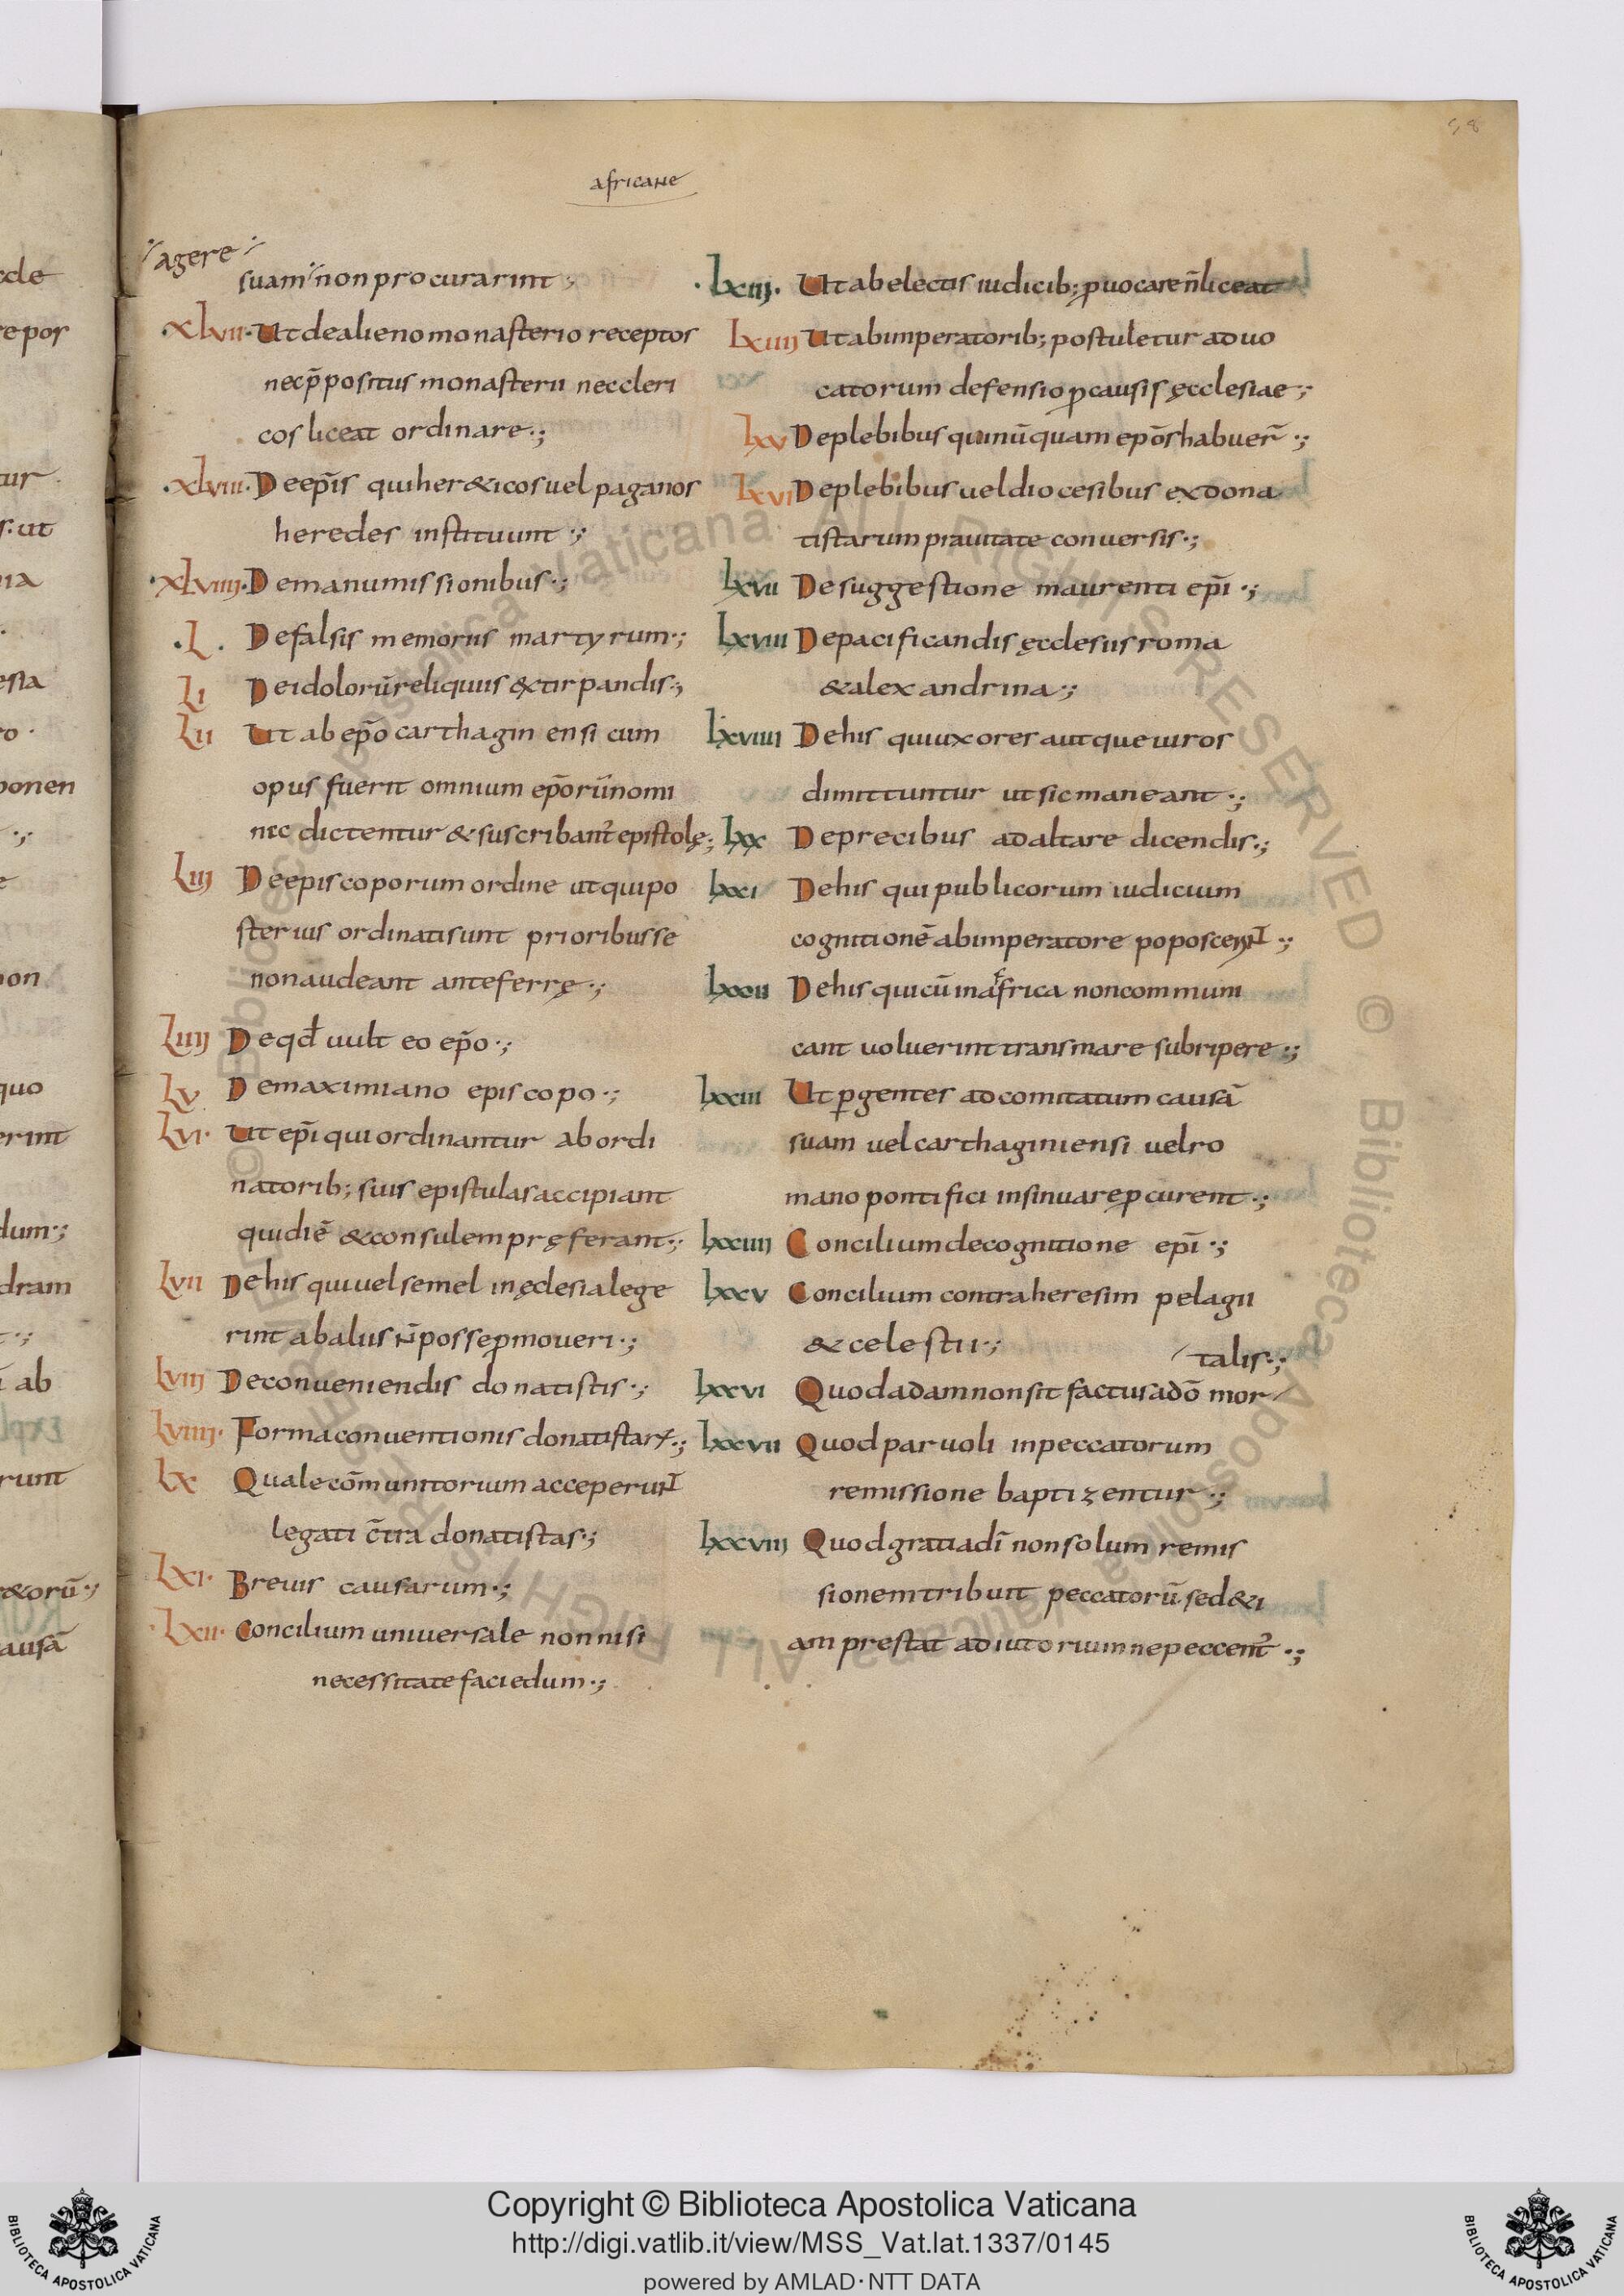 58
africane
agere
suam non procurarint ;
·xlvii· Ut de alieno monasterio receptos
nec p̄positus monasterii nec cleri
cos liceat ordinare·;
·xlviii· De ep̄is qui her&icos uel paganos
heredes instituunt ·;
·xlviiii· De manumissionibus·;
·L· De falsis memoriis martyrum·;
Li De idolorū reliquiis extirpandis·;
Lii Ut ab ep̄o carthaginensi cum
opus fuerit omnium ep̄orū nomi
nec dictentur & suscribant̄ epistolę·;
Liii De episcoporum ordine ut qui po
sterius ordinati sunt prioribus se
non audeant anteferrę·;
Liiii De qđ uult eo ep̄o·;
Lv De maximiano episcopo·;
Lvi· Ut ep̄i qui ordinantur ab ordi
natorib; suis epistulas accipiant
qui diē & consulem pręferant·;
Lvii De his qui uel semel in ęclesia lege
rint ab aliis n̄ posse pmoueri·;
Lviii De conueniendis donatistis·;
Lviiii· Forma conuentionis donatistarꝝ·;
Lx Quale cōmunitorium acceperunt
legati c̄tra donatistas·;
Lxi· Breuis causarum·;
·Lxii· Concilium uniuersale non nisi
necessitate faciedum·;
·lxiii· Ut ab electis iudicib; puocare n̄ liceat
lxiiii Ut ab imperatorib; postuletur aduo
catorum defensio p causis ęcclesiae·;
lxv De plebibus qui nūquam ep̄os habuer̄ ·;
lxvi De plebibus uel diocesibus ex dona
tistarum prauitate conuersis·;
lxvii De suggestione maurenti ep̄i ·;
lxviii De pacificandis ęcclesiis roma
& alexandrina·;
lxviiii De his qui uxores aut que uiros
dimittuntur ut sic maneant ·;
lxx De precibus ad altare dicendis·;
lxxi De his qui publicorum iudicium
cognitionē ab imperatore poposcerint ·;
lxxii De his qui cū in africa non communi
cant uoluerint trans mare subripere ·;
lxxiii Ut pgentes ad comitatum causā
suam uel carthaginiensi uel ro
mano pontifici insinuare pcurent ·;
lxxiiii Concilium de cognitione ep̄i ·;
lxxv Concilium contra heresim pelagii
& celestii·;
talis·;
lxxvi Quod adam non sit factus a dō mor
lxxvii Quod paruoli in peccatorum
remissione baptizentur ·;
lxxviii Quod gratia dī non solum remis
sionem tribuit peccatorū sed &i
am prestat adiutorium ne peccent̄ ·;
© Biblioteca Apostolica Vaticana ALL RIGHTS RESERVED
Copyright © Biblioteca Apostolica Vaticana
http://digi.vatlib.it/view/MSS_Vat.lat.1337/0145
powered by AMLAD·NTT DATA
BIBLIOTECA APOSTOLICA VATICANA
BIBLIOTECA APOSTOLICA VATICANA